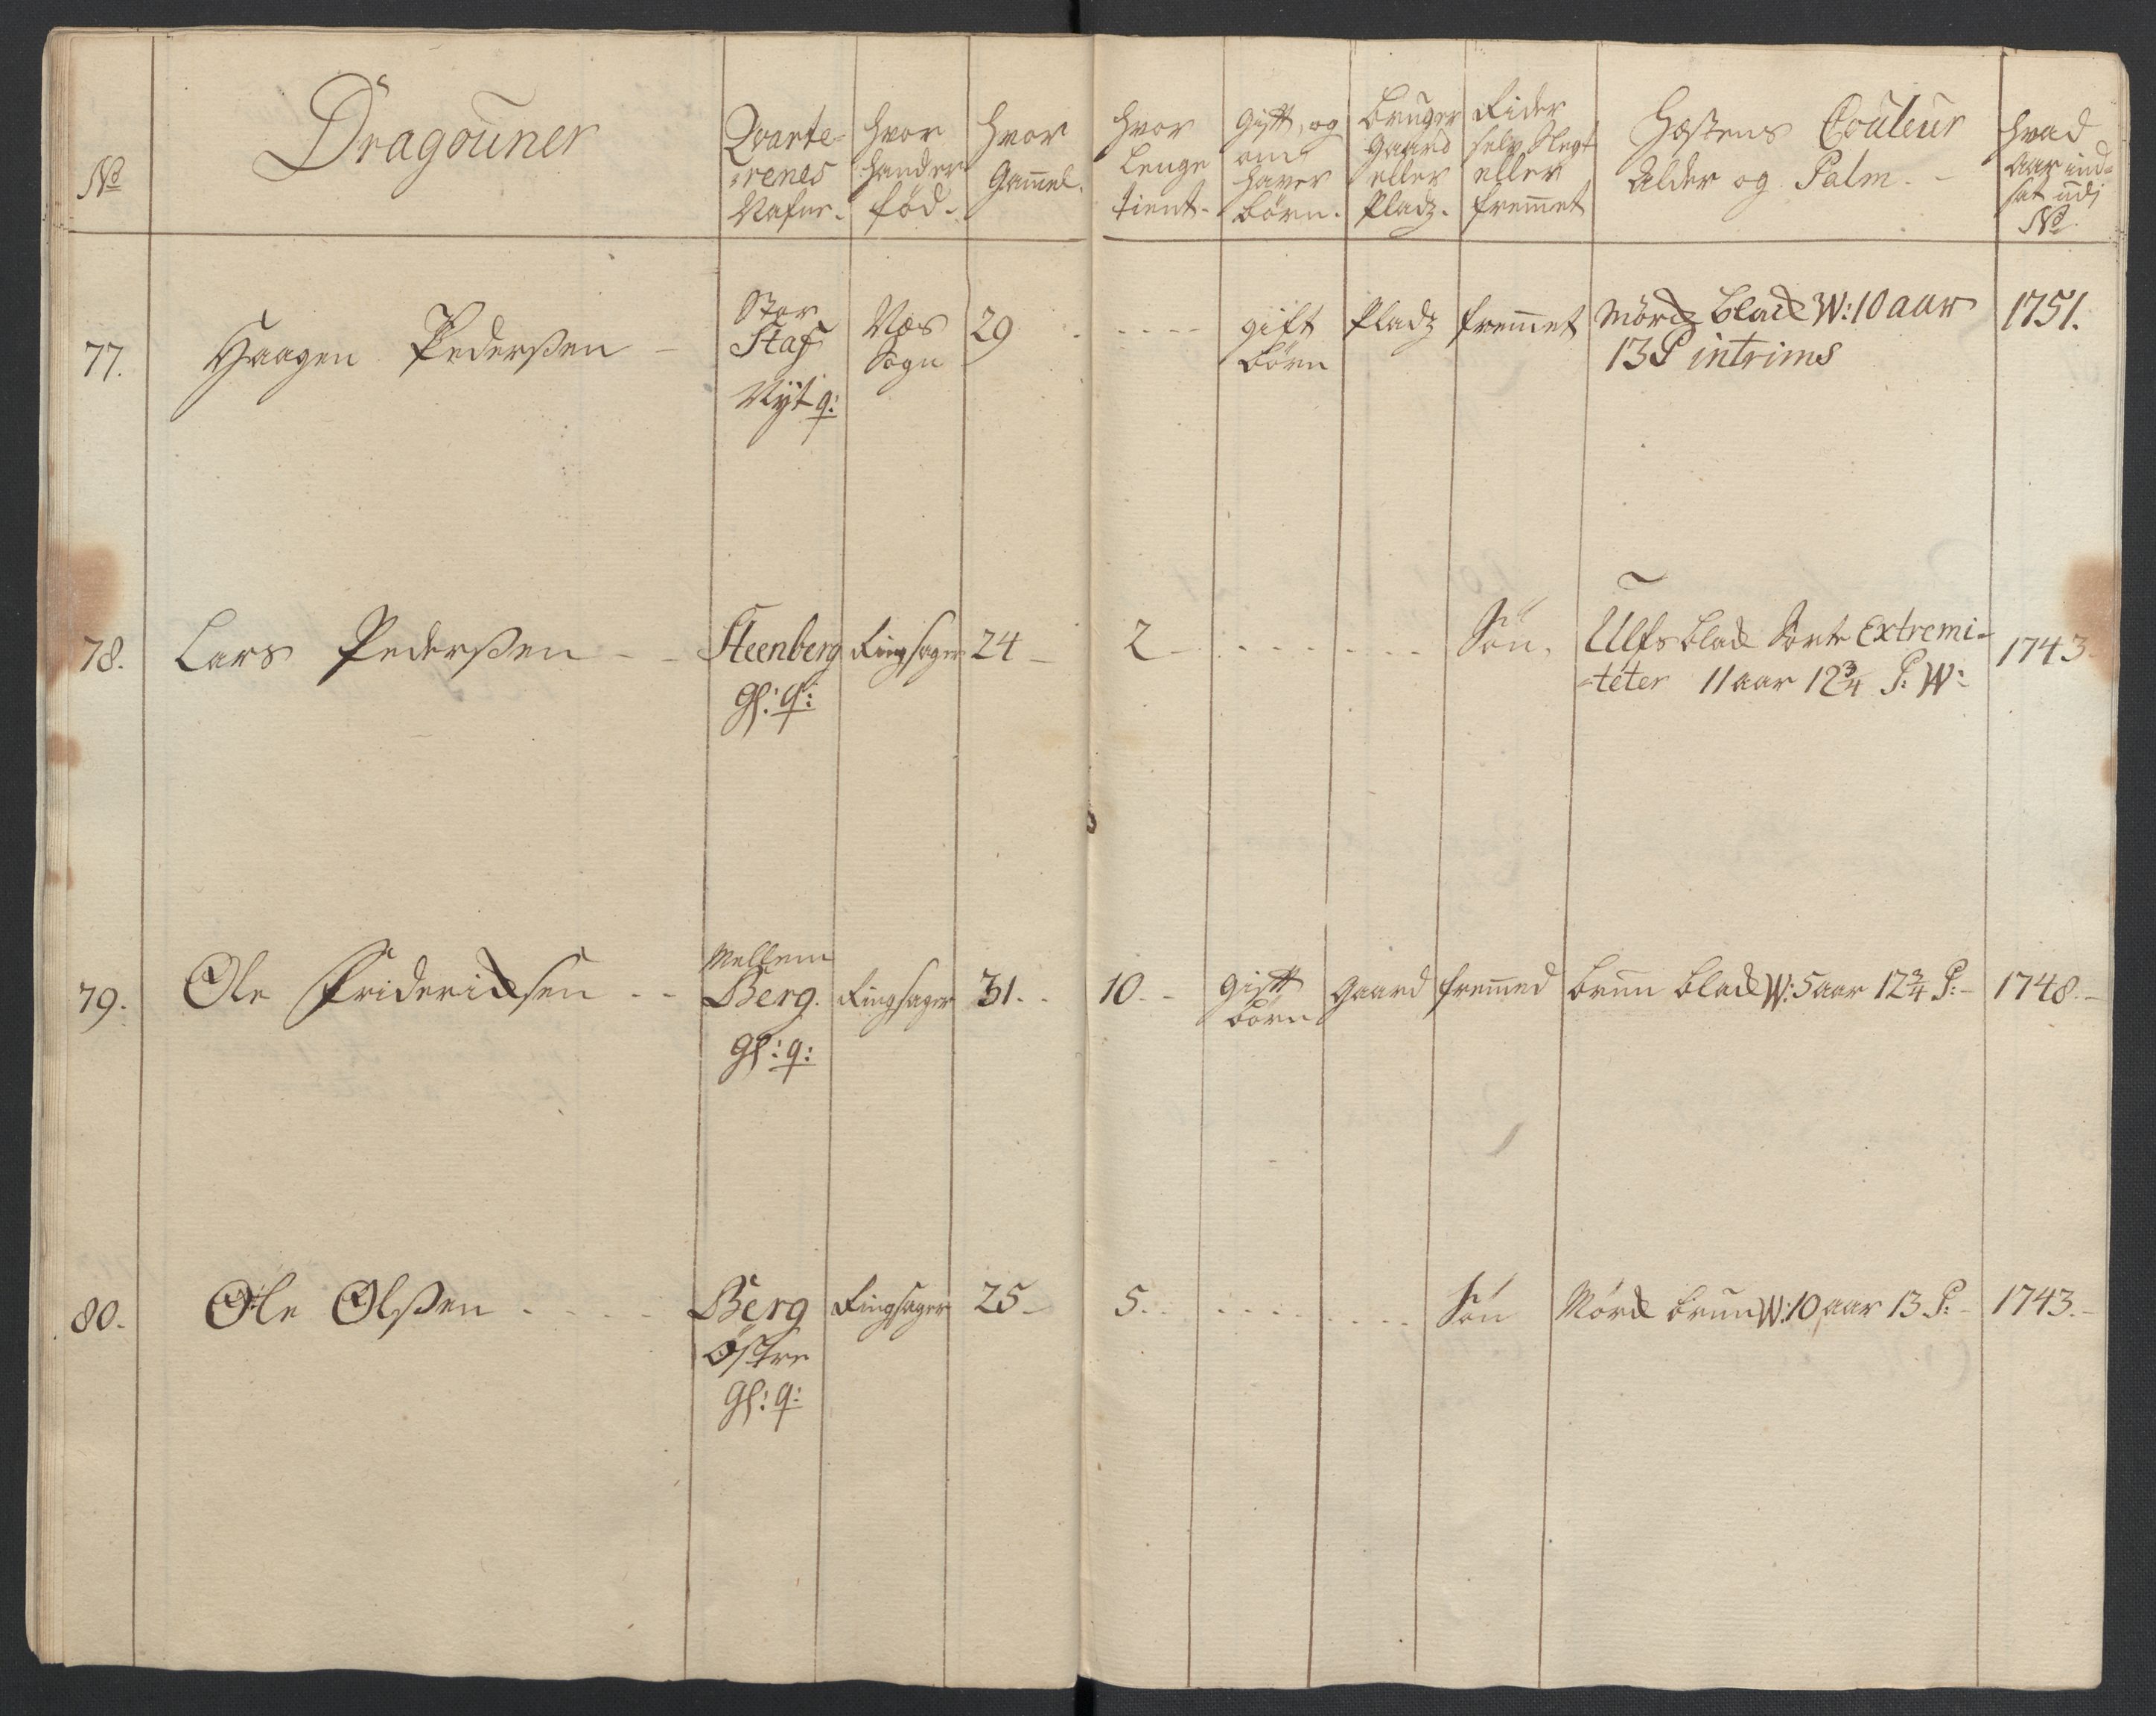 No
Dragouner
Qvarte-
renes
Nafne.
hvor
hand er
fød.
hvor
Gammel.
hvor
lenge
tient.
gift, og
om
haver
børn.
bruger
gaard
eller
Pladz.
Rider
selv Slegt
eller
fremmet
Hæstens Couleur
Alder og Palm.
hvad
aar ind-
sat udj
No
77.
Haagen Pederßen
Stor
Staf
Nyt q:
Næs
Sogn
29
gift
børn
Pladz
fremmet
Mörk blak W: 10 aar
13 P intrims
1751.
78.
Lars Pederßen
Steenberg
Gl: q:
Ringsager
24
2
Søn.
Ulfs blak Sorte Extremi-
-teter 11 aar 12¾ P: W:
1743.
79.
Ole Friderichsen
Mellem
Berg.
Gl: q:
Ringsager
31.
10.
gift
børn
gaard
fremmed
brun blak W: 5 aar 12¾ P:
1748.
80.
Ole Olßen
Berg
Østre
Gl: q:
Ringsager
25
5.
Søn
Mörk brun W: 10 aar 13 P:
1743.